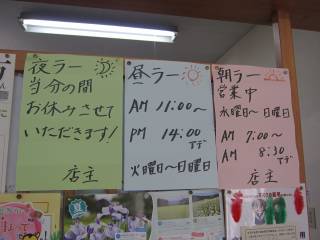 夜ラー
当分の間
お休みさせて
いただきます!
店主
昼ラー
AM 11:00～
PM 14:00
までﾞ
火曜日～日曜日
朝ラー
営業中
水曜日～日曜日
AM 7:00～
AM 8:30
までﾞ
店主
夏